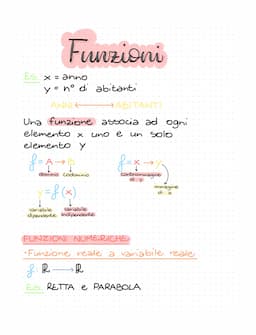 Funzioni
Es: x = anno
y = n° di abitanti
ANNI ⟷ ABITANTI
Una funzione associa ad ogni
elemento x uno e un solo
elemento y
f = A → b f = x → y
dominio codominio controimmagine di y immagine di x
y = f(x)
variabile dipendente variabile indipendente
FUNZIONI NUMERICHE
• Funzione reale a variabile reale
f: ℝ → ℝ
Es: RETTA e PARABOLA